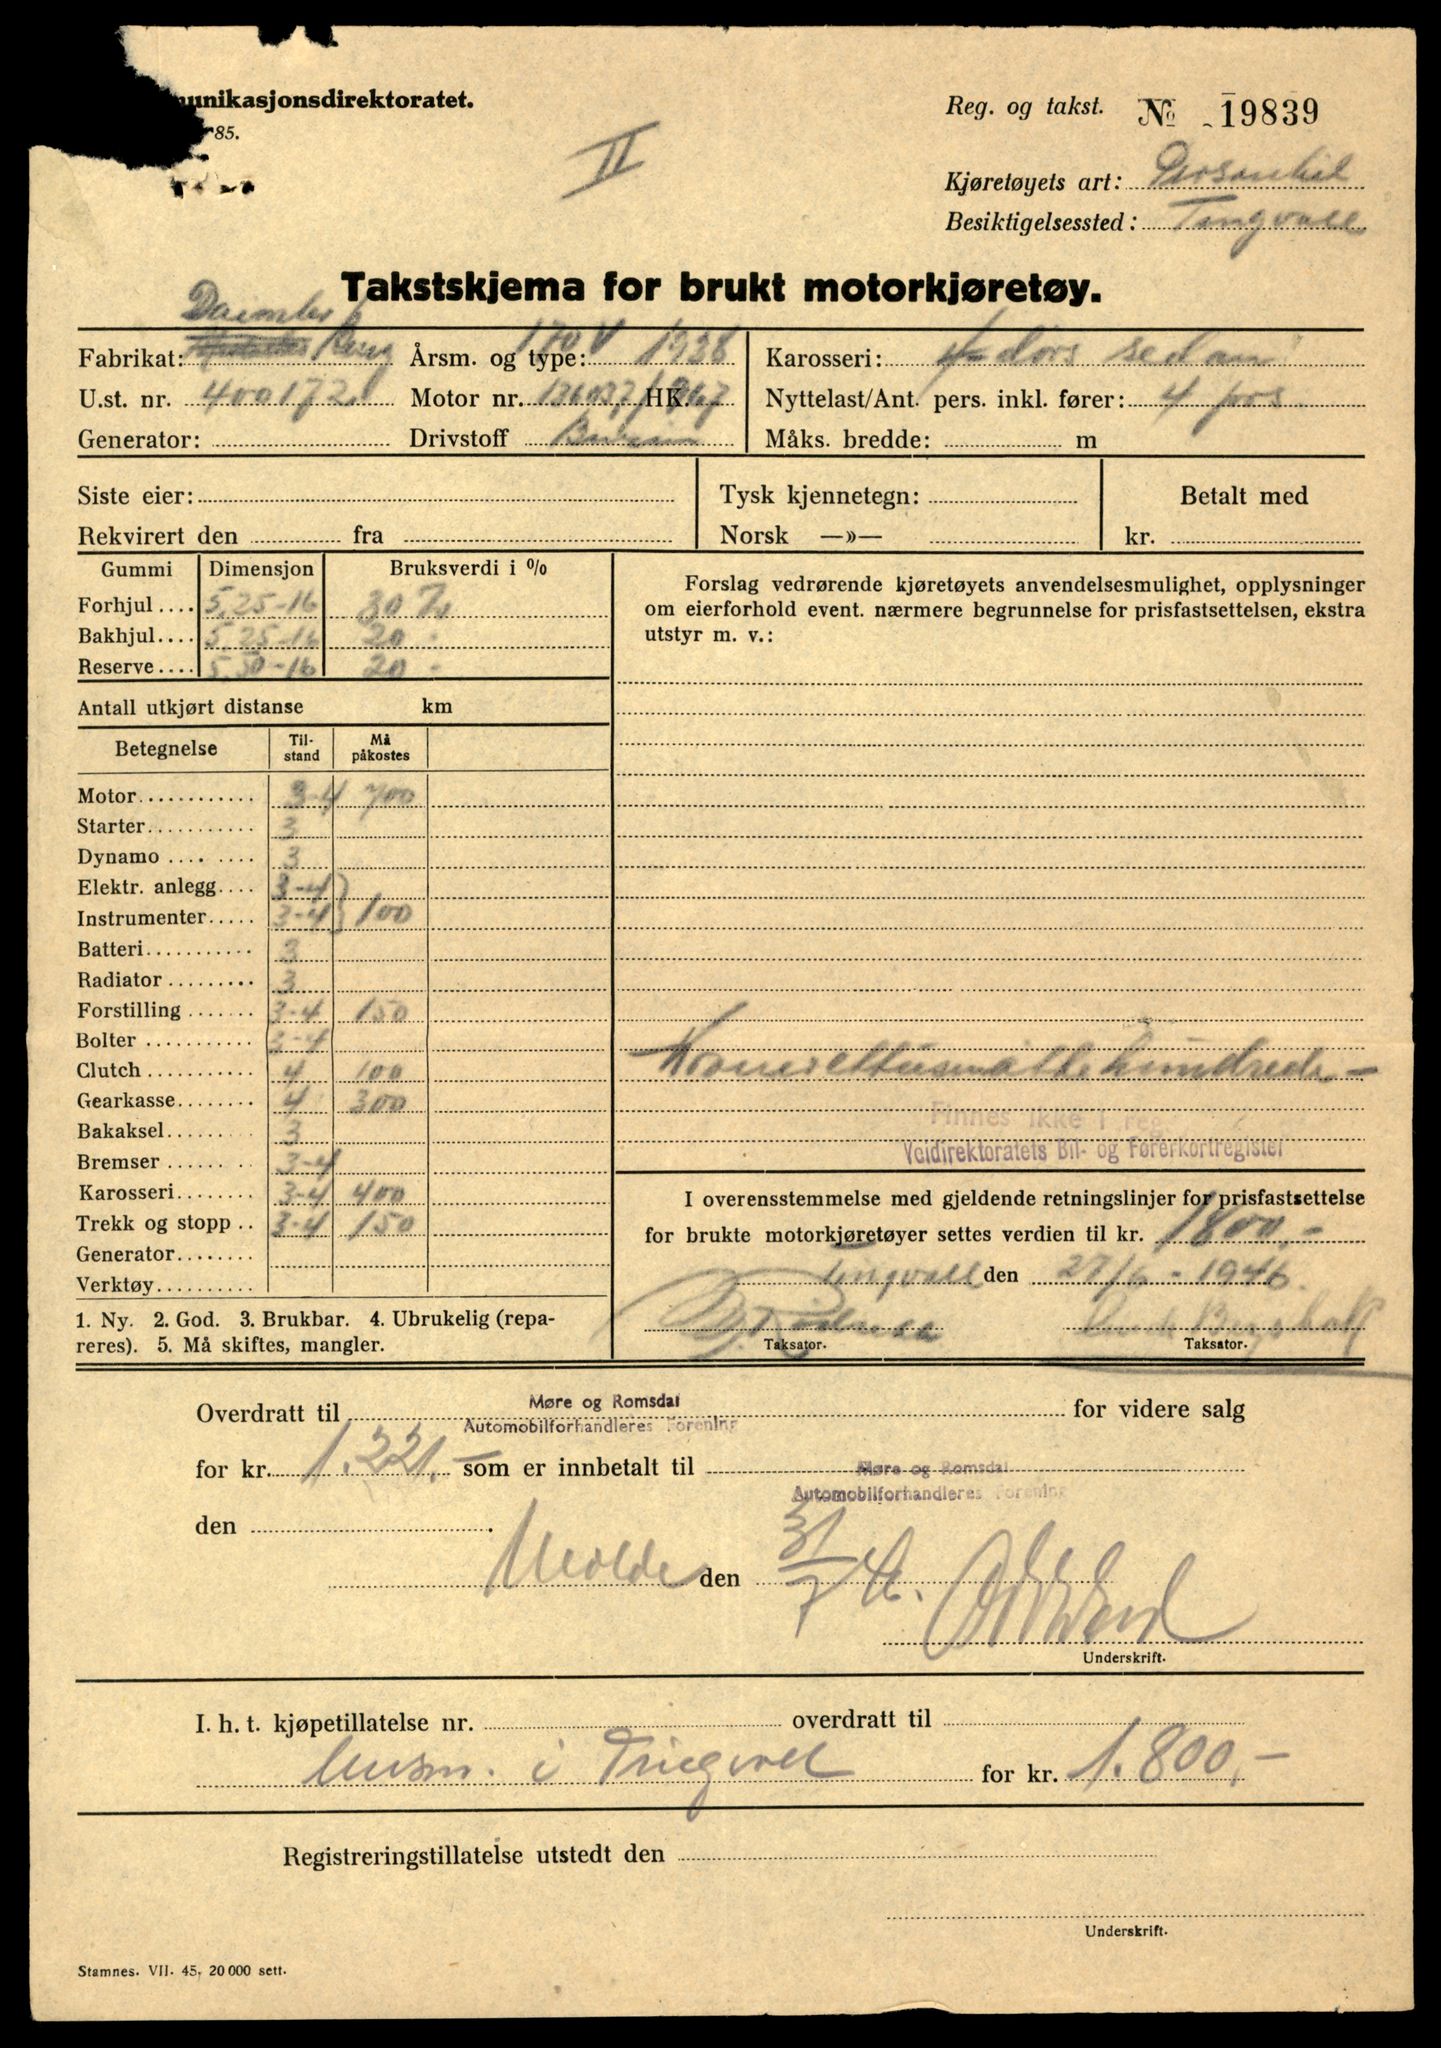 unikasjonsdirektoratet.
85.
II
Reg. og takst. № 19839
Kjøretøyets art: Personbil
Besiktigelsessted: Tingvoll
Takstskjema for brukt motorkjøretøy.
Daimler
Fabrikat: Benz Årsm. og type: 170 V 1938 Karosseri: 4 dørs sedan
U.st. nr. 400172 Motor nr. HK. Nyttelast/Ant. pers. inkl. fører: 4 pers
Generator: Drivstoff Bensin Måks. bredde: m
Siste eier: Tysk kjennetegn: Betalt med
Rekvirert den fra Norsk —»— kr.
Gummi Dimensjon Bruksverdi i %
Forhjul .... 5,25-16 30 %
Bakhjul.... 5,25-16 20 -
Reserve .... 5,50-16 20 -
Forslag vedrørende kjøretøyets anvendelsesmulighet, opplysninger
om eierforhold event. nærmere begrunnelse for prisfastsettelsen, ekstra
utstyr m. v.:
Antall utkjørt distanse km
Betegnelse Til-stand Må påkostes
Motor........... 3-4 700
Starter........... 3
Dynamo .... ..... 3
Elektr. anlegg.... 3-4 }
Instrumenter..... 3-4 } 100
Batteri........... 3
Radiator ......... 3
Forstilling ....... 3-4 150
Bolter ........... 3-4
Clutch ........... 4 100
Gearkasse........ 4 300
Bakaksel......... 3
Bremser ...... ... 3-4
Karosseri........ 3-4 400
Trekk og stopp .. 3-4 150
Generator........
Verktøy..........
1. Ny. 2. God. 3. Brukbar. 4. Ubrukelig (repa-
reres). 5. Må skiftes, mangler.
Kroner ettusenåttehundrede –
Finnes ikke i reg.
Veidirektoratets Bil- og Førerkortregister
I overensstemmelse med gjeldende retningslinjer for prisfastsettelse
for brukte motorkjøretøyer settes verdien til kr. 1800,-
Tingvoll den 27/6 - 1946.
Taksator. Taksator.
Møre og Romsdal
Overdratt til Automobilforhandleres Forening for videre salg
for kr. 1.221.- som er innbetalt til Møre og Romsdal
Automobilforhandleres Forening
den
Molde den 31/7 46.
Underskrift.
I. h. t. kjøpetillatelse nr. overdratt til
i Tingvoll for kr. 1.800,-
Registreringstillatelse utstedt den
Underskrift.
Stamnes. VII. 45. 20 000 sett.